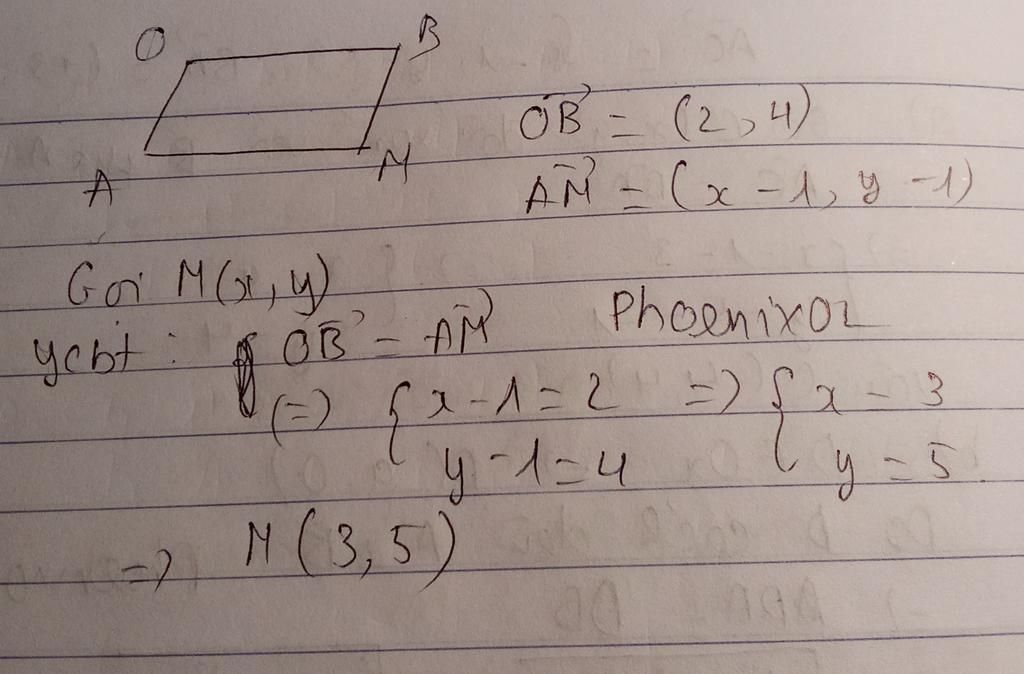 O B
A M
OB⃗ = (2, 4)
AM⃗ = (x - 1, y - 1)
Gọi M(x, y)
ycbt : OB⃗ = AM⃗
Phoenix02
(=) { x - 1 = 2 =) { x = 3
y - 1 = 4 y = 5.
=) M (3, 5)